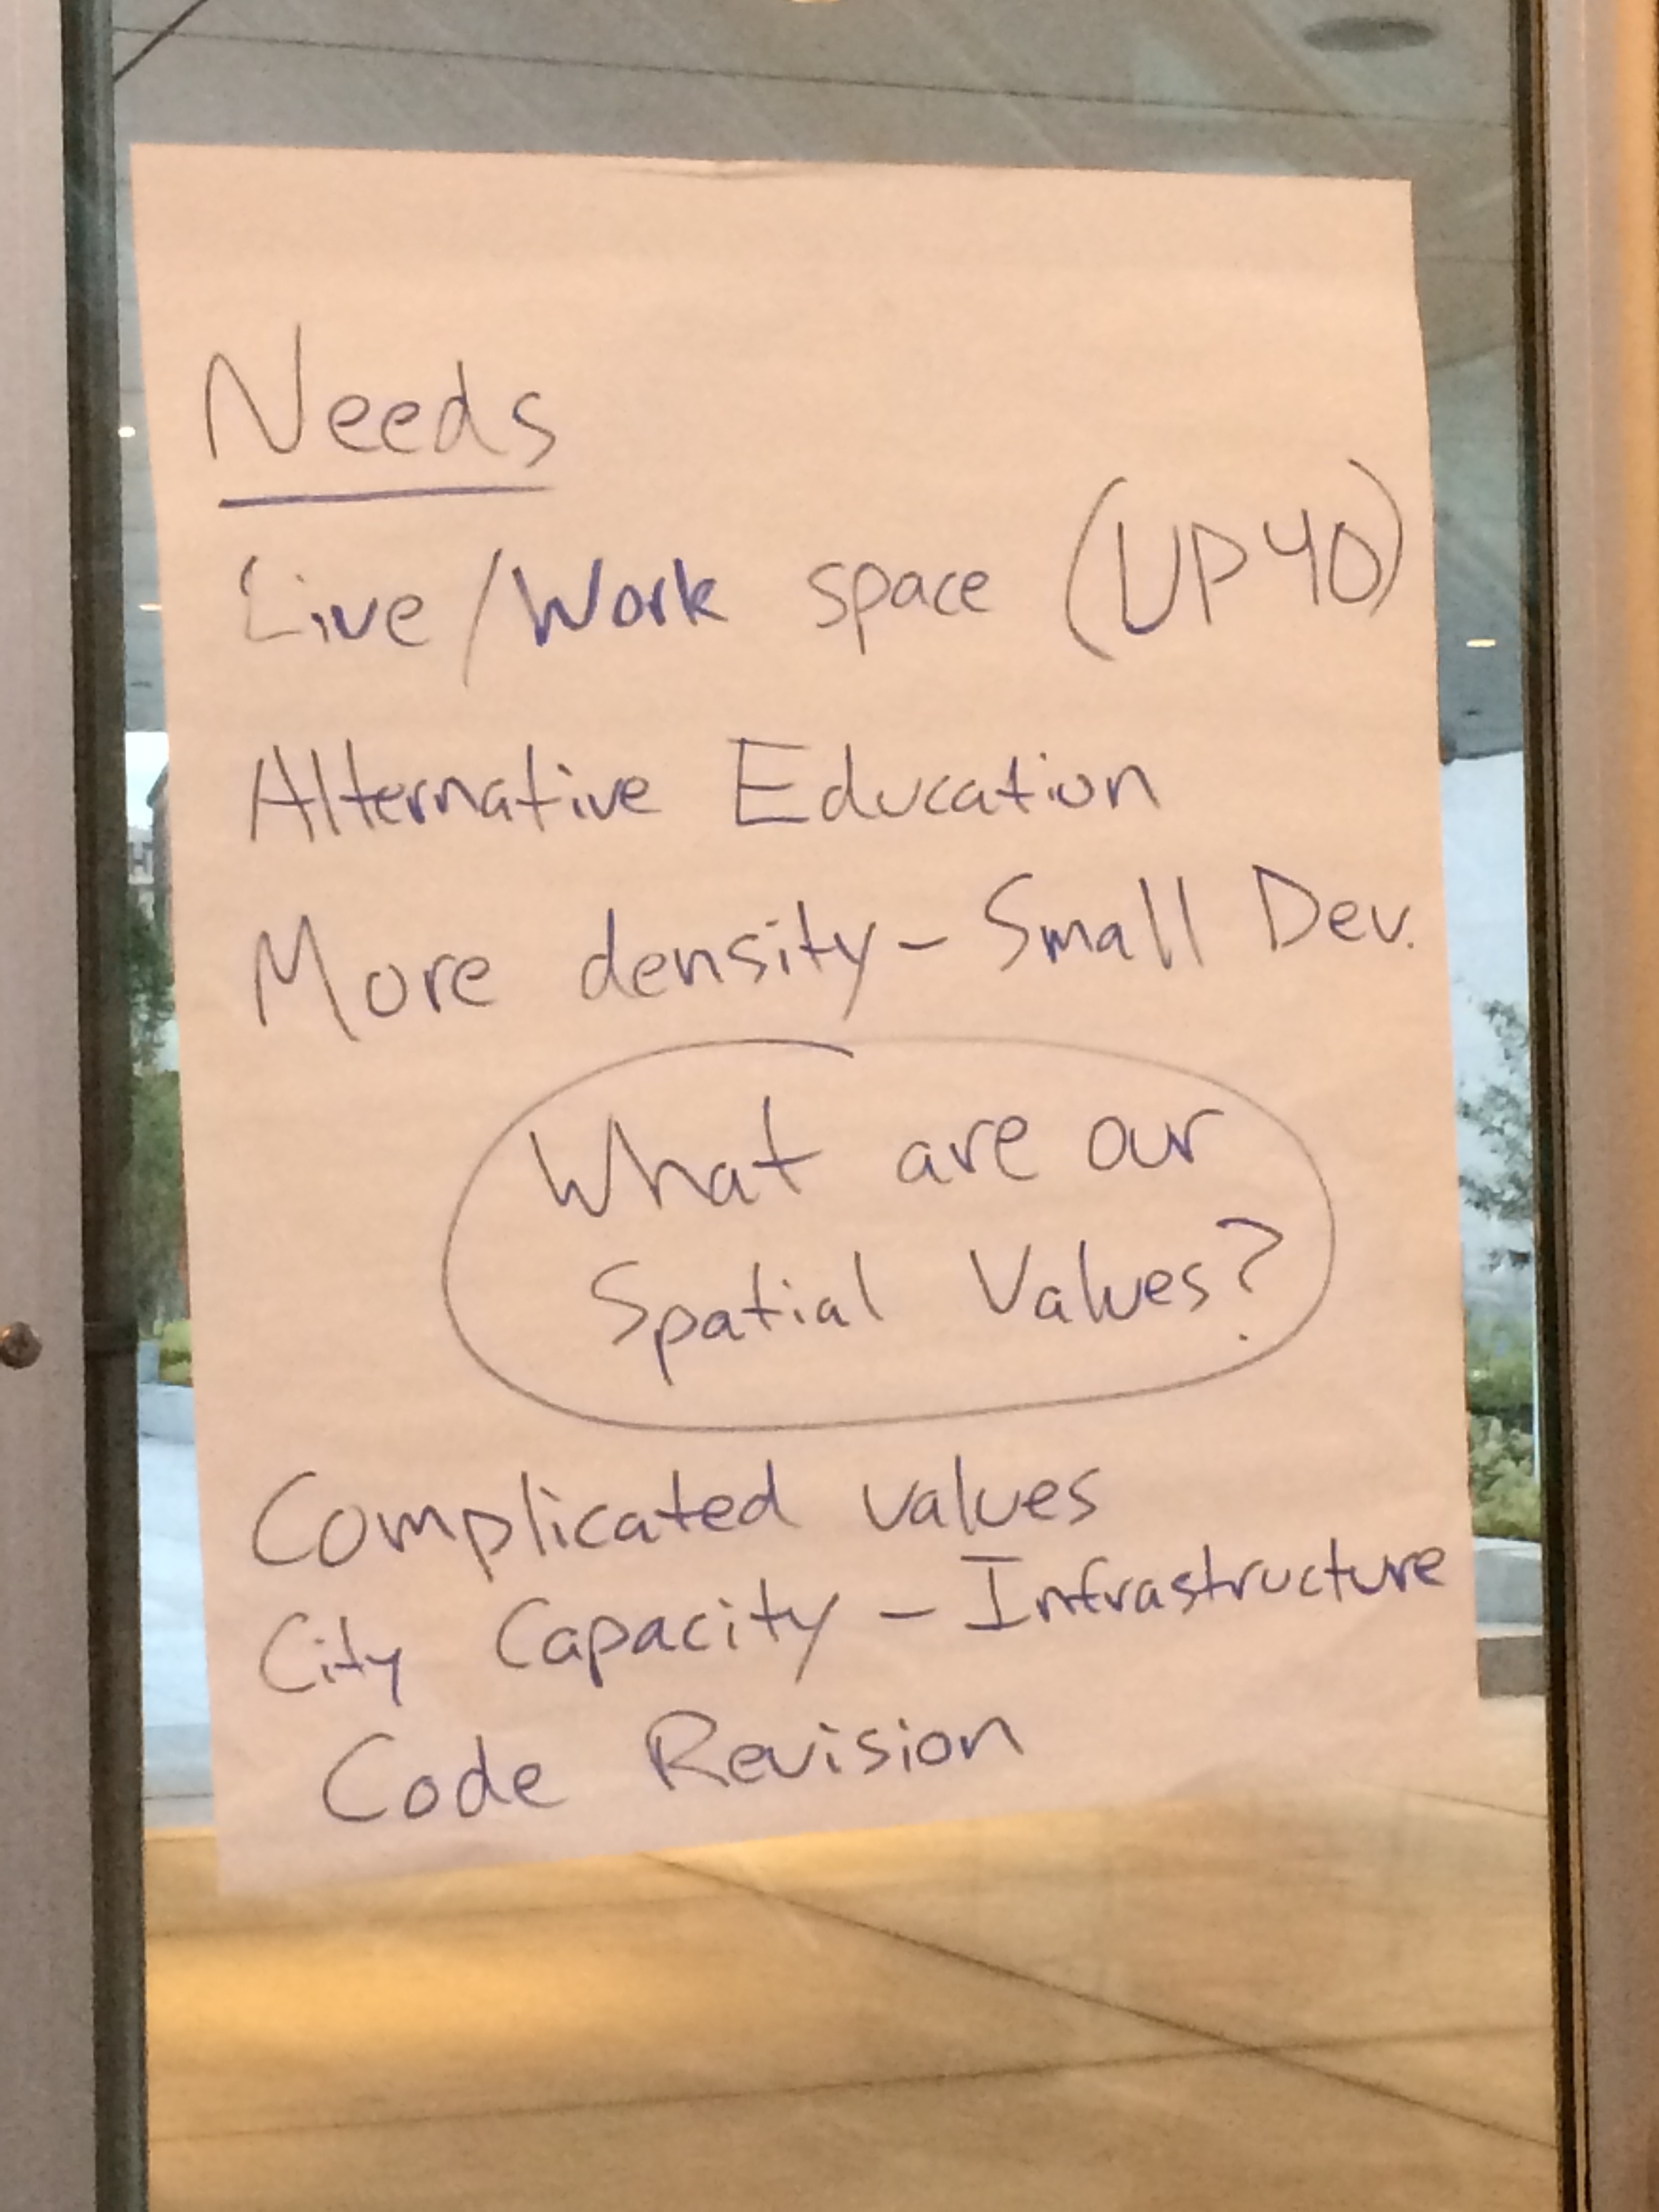 Needs
Live/Work space (UP40)
Alternative Education
More density - Small Dev.
What are our
Spatial Values?
Complicated values
City Capacity - Infrastructure
Code Revision